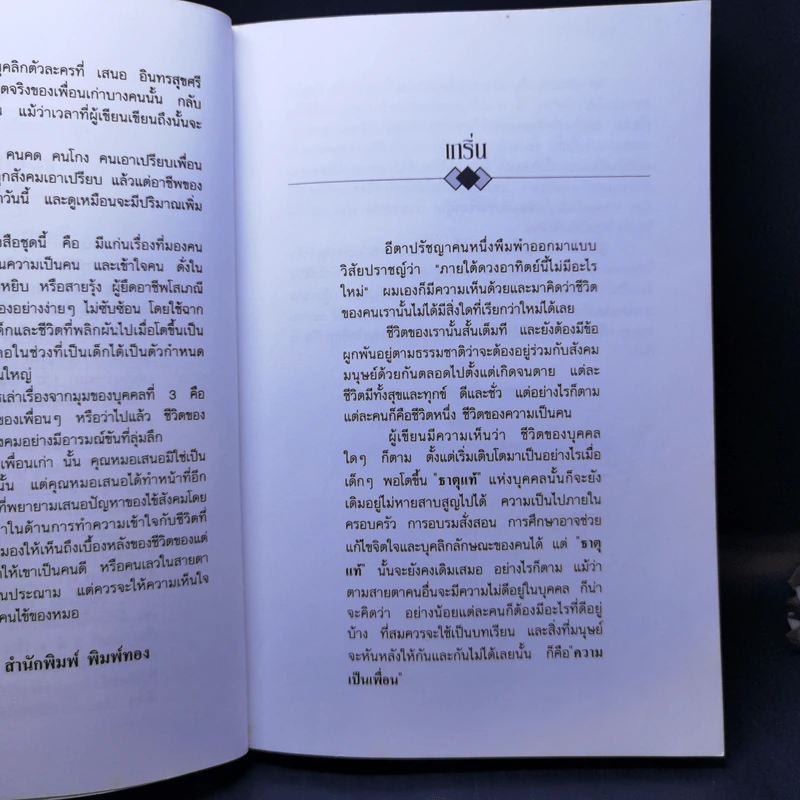 ุคลิกตัวละครที่ เสนอ อินทรสุขศรี
ตจริงของเพื่อนเก่าบางคนนั้น กลับ
แม้ว่าเวลาที่ผู้เขียนเขียนถึงนั้นจะ
คนคด คนโกง คนเอาเปรียบเพื่อน
ูกสังคมเอาเปรียบ แล้วแต่อาชีพของ
าวันนี้ และดูเหมือนจะมีปริมาณเพิ่ม
สือชุดนี้ คือ มีแก่นเรื่องที่มองคน
นความเป็นคน และเข้าใจคน ดั่งใน
หยิบ หรือสายรุ้ง ผู้ยึดอาชีพโสเภณี
องอย่างง่ายๆ ไม่ซับซ้อน โดยใช้ฉาก
ด็กและชีวิตที่พลิกผันไปเมื่อโตขึ้นเป็น
ดอในช่วงที่เป็นเด็กได้เป็นตัวกำหนด
นใหญ่
รเล่าเรื่องจากมุมของบุคคลที่ 3 คือ
ของเพื่อนๆ หรือว่าไปแล้ว ชีวิตของ
งคมอย่างมีอารมณ์ขันที่ลุ่มลึก
เพื่อนเก่า นั้น คุณหมอเสนอมิใช่เป็น
นั้น แต่คุณหมอเสนอได้ทำหน้าที่อีก
ที่พยายามเสนอปัญหาของไข้สังคมโดย
าในด้านการทำความเข้าใจกับชีวิตที่
มองให้เห็นถึงเบื้องหลังของชีวิตของแต่
ำให้เขาเป็นคนดี หรือคนเลวในสายตา
นประณาม แต่ควรจะให้ความเห็นใจ
คนไข้ของหมอ
สำนักพิมพ์ พิมพ์ทอง
เกริ่น
อีตาปรัชญาคนหนึ่งพึมพำออกมาแบบ
วิสัยปราชญ์ว่า "ภายใต้ดวงอาทิตย์นี้ไม่มีอะไร
ใหม่" ผมเองก็มีความเห็นด้วยและมาคิดว่าชีวิต
ของคนเรานั้นไม่ได้มีสิ่งใดที่เรียกว่าใหม่ได้เลย
ชีวิตของเรานั้นสั้นเต็มที และยังต้องมีข้อ
ผูกพันอยู่ตามธรรมชาติว่าจะต้องอยู่ร่วมกับสังคม
มนุษย์ด้วยกันตลอดไปตั้งแต่เกิดจนตาย แต่ละ
ชีวิตมีทั้งสุขและทุกข์ ดีและชั่ว แต่อย่างไรก็ตาม
แต่ละคนก็คือชีวิตหนึ่ง ชีวิตของความเป็นคน
ผู้เขียนมีความเห็นว่า ชีวิตของบุคคล
ใดๆ ก็ตาม ตั้งแต่เริ่มเติบโตมาเป็นอย่างไรเมื่อ
เด็กๆ พอโตขึ้น "ธาตุแท้" แห่งบุคคลนั้นก็จะยัง
เดิมอยู่ไม่หายสาบสูญไปได้ ความเป็นไปภายใน
ครอบครัว การอบรมสั่งสอน การศึกษาอาจช่วย
แก้ไขจิตใจและบุคลิกลักษณะของคนได้ แต่ "ธาตุ
แท้" นั้นจะยังคงเดิมเสมอ อย่างไรก็ตาม แม้ว่า
ตามสายตาคนอื่นจะมีความไม่ดีอยู่ในบุคคล ก็น่า
จะคิดว่า อย่างน้อยแต่ละคนก็ต้องมีอะไรที่ดีอยู่
บ้าง ที่สมควรจะใช้เป็นบทเรียน และสิ่งที่มนุษย์
จะหันหลังให้กันและกันไม่ได้เลยนั้น ก็คือ"ความ
เป็นเพื่อน"